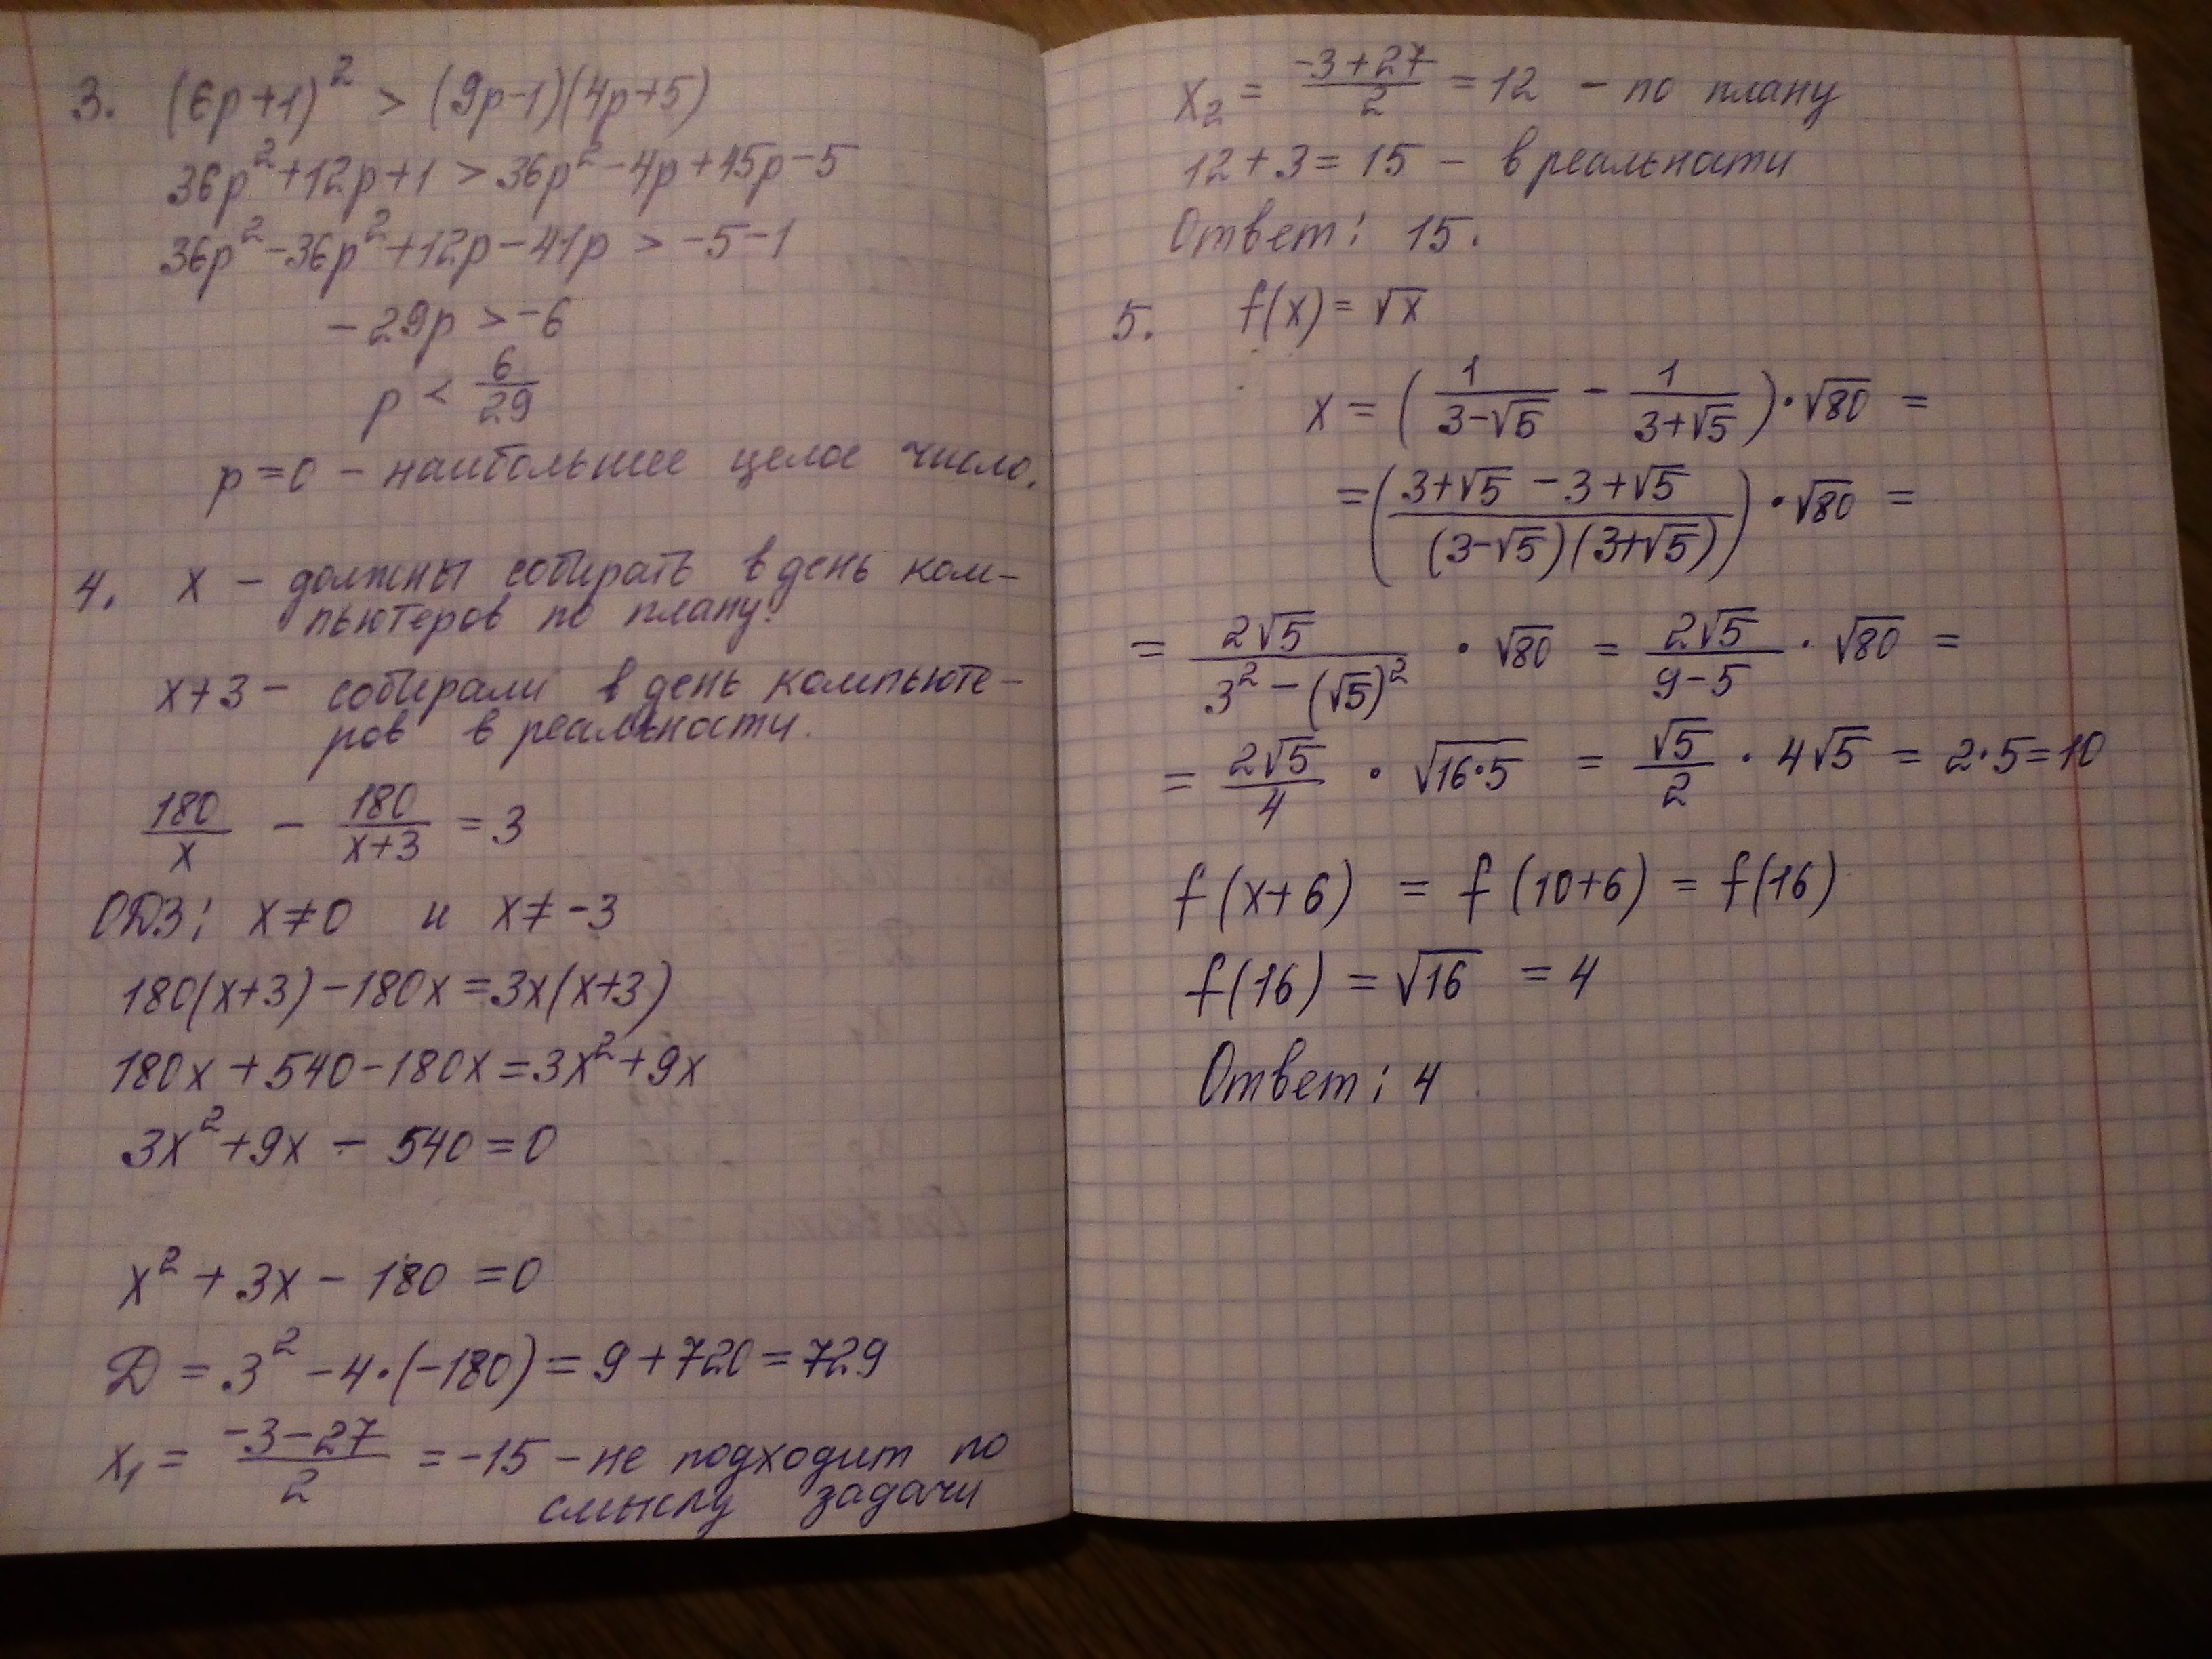 3. (6p+1)² > (9p-1)(4p+5)
36p²+12p+1 > 36p²-4p+45p-5
36p²-36p²+12p-41p > -5-1
-29p > -6
p < 6/29
p=0 - наибольшее целое число.
4. x - должны собирать в день ком-
пьютеров по плану.
x+3 - собирали в день компьюте-
ров в реальности.
180/x - 180/(x+3) = 3
ОДЗ: x≠0 и x≠-3
180(x+3)-180x=3x(x+3)
180x+540-180x=3x²+9x
3x²+9x - 540=0
x²+3x-180=0
Д = 3²-4·(-180)=9+720=729
x₁ = (-3-27)/2 = -15 - не подходит по
смыслу задачи
x₂ = (-3+27)/2 = 12 - по плану
12+3=15 - в реальности
Ответ: 15.
5. f(x)=√x
x = (1/(3-√5) - 1/(3+√5))·√80 =
= ((3+√5-3+√5)/((3-√5)(3+√5)))·√80 =
= 2√5/(3²-(√5)²) · √80 = 2√5/(9-5) · √80 =
= 2√5/4 · √(16·5) = √5/2 · 4√5 = 2·5=10
f(x+6) = f(10+6) = f(16)
f(16) = √16 = 4
Ответ: 4